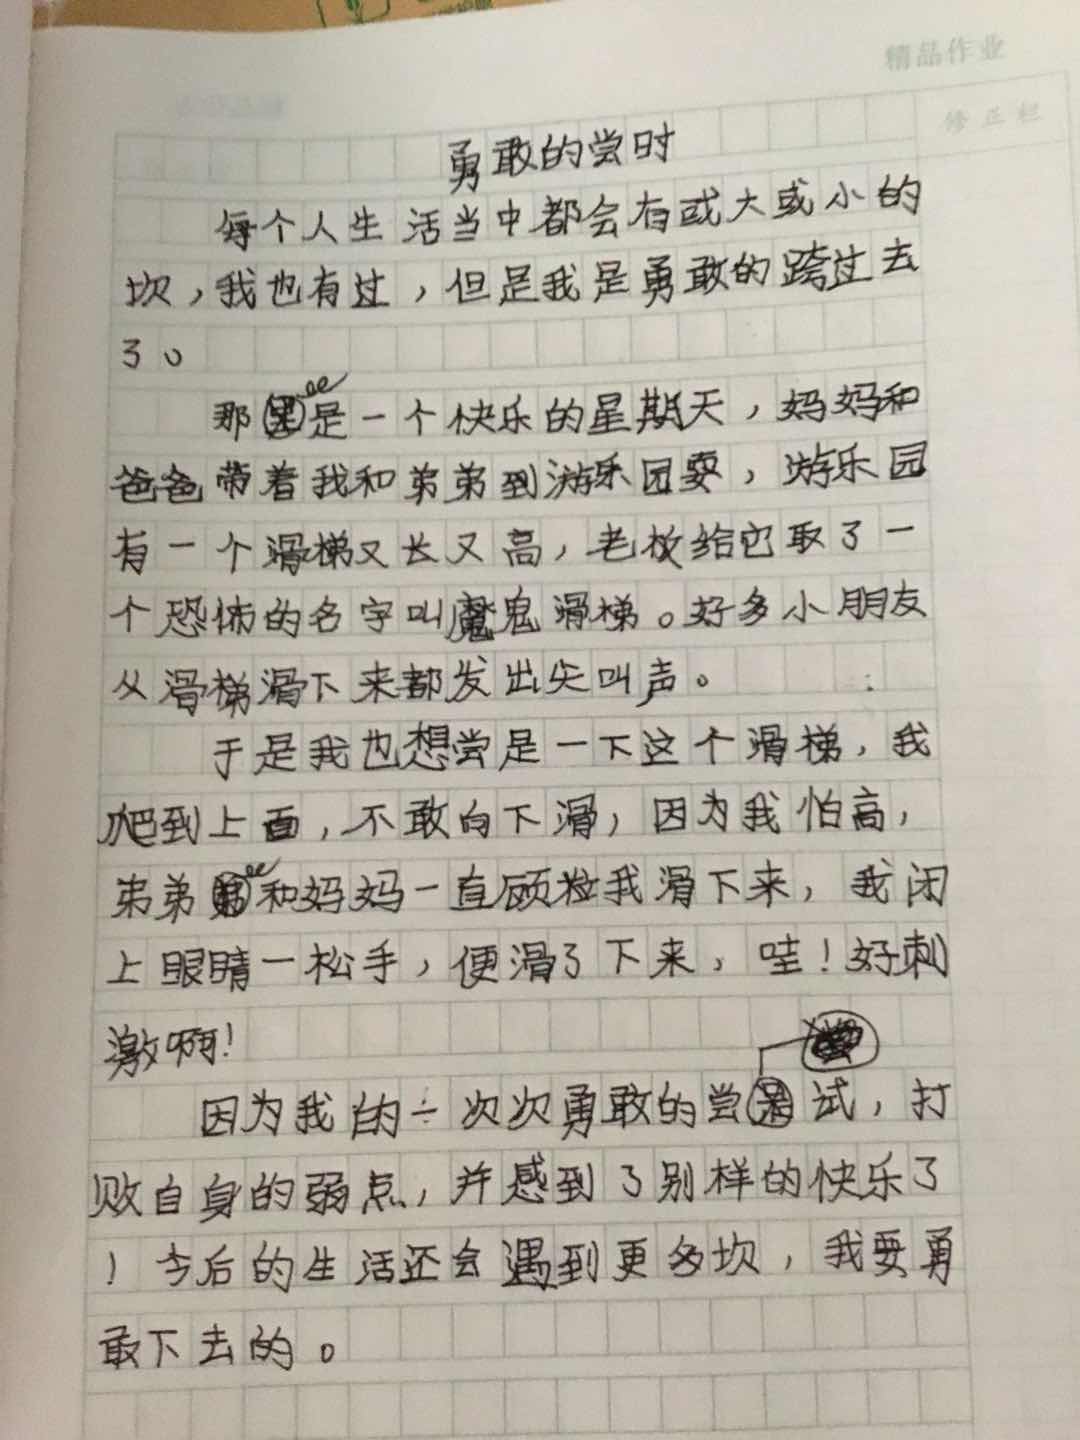 精品作业
修正栏
勇敢的尝时
每个人生活当中都会有或大或小的
坎，我也有过，但是我是勇敢的跨过去
了。
那是一个快乐的星期天，妈妈和
爸爸带着我和弟弟到游乐园耍，游乐园
有一个滑梯又长又高，老板给它取了一
个恐怖的名字叫魔鬼滑梯。好多小朋友
从滑梯滑下来都发出尖叫声。
于是我也想尝是一下这个滑梯，我
爬到上面，不敢向下滑，因为我怕高，
弟弟和妈妈一直顾粒我滑下来，我闭
上眼睛一松手，便滑了下来，哇！好刺
激啊！
因为我的一次次勇敢的尝试，打
败自身的弱点，并感到了别样的快乐了
！今后的生活还会遇到更多坎，我要勇
敢下去的。